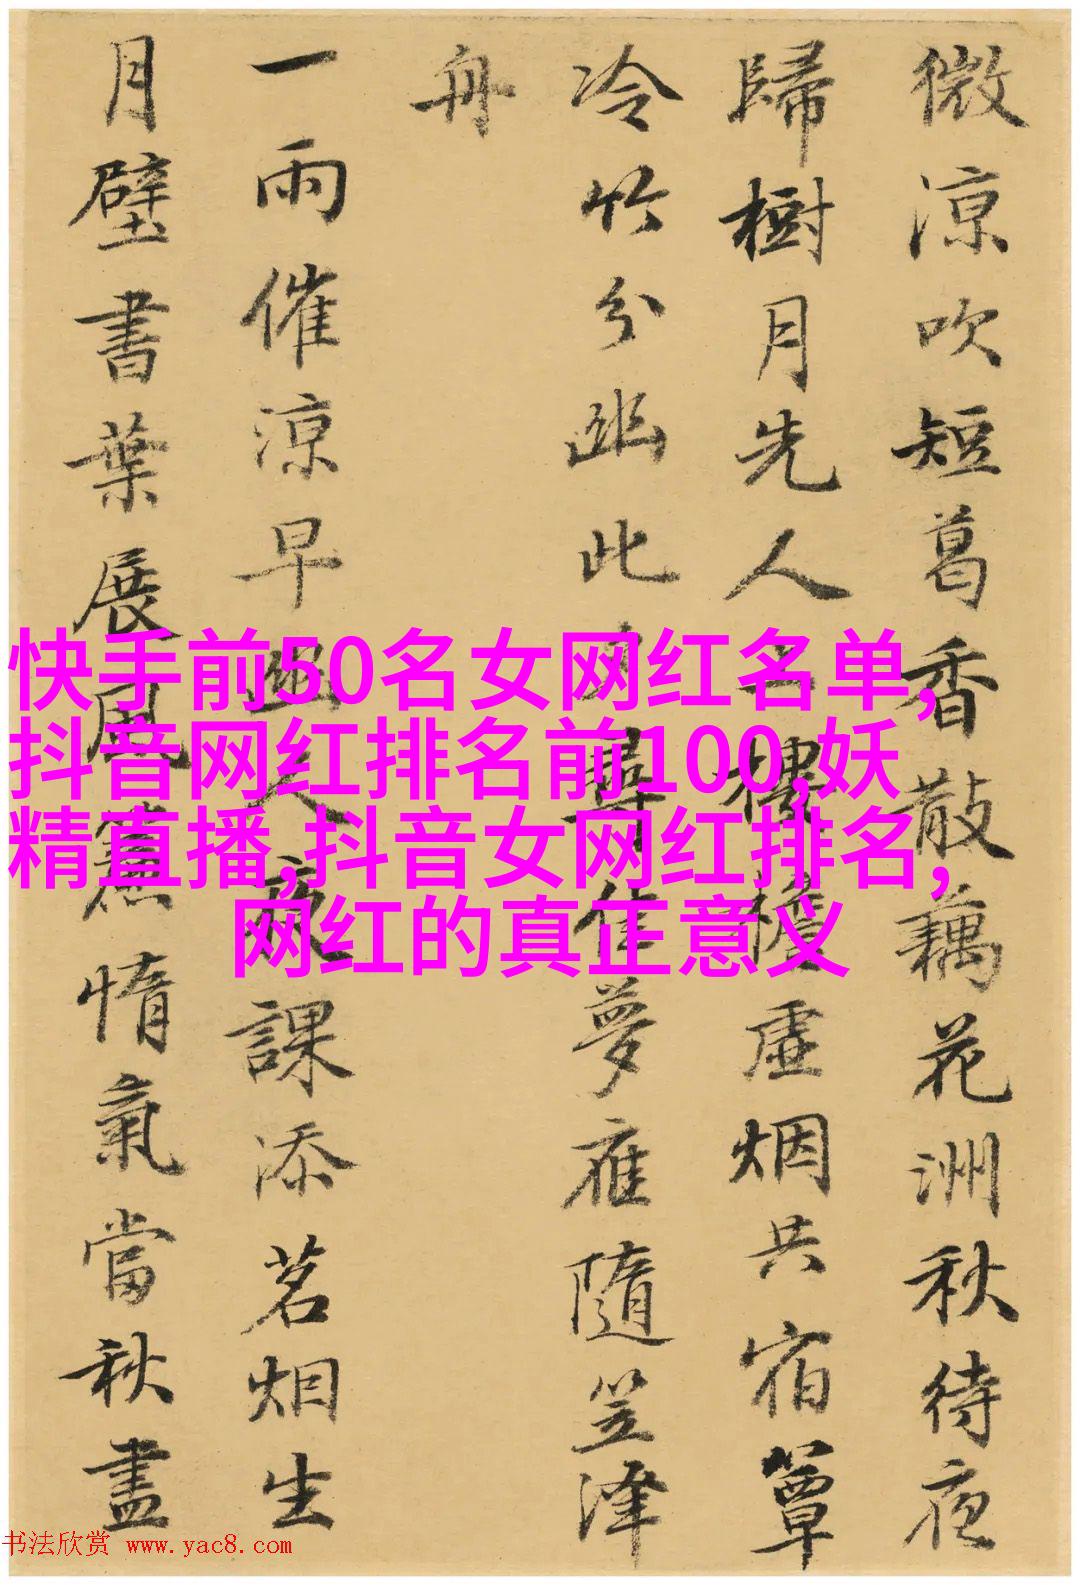 微涼吹短葛香散藕花洲秋待夜
歸樹月先人上樓檐虛烟共宿簟
冷竹分幽此夕尋佳夢雁隨笠澤
舟
一雨催涼早幽人夜課添茗烟生
月壁書葉展風簾惰氣當秋盡
快手前50名女网红名单,
抖音网红排名前100,妖
精直播,抖音女网红排名,
网红的真正意义
书法欣赏 www.yac8.com